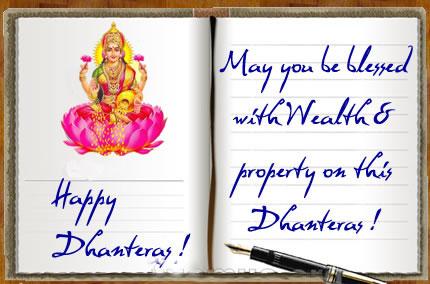 Happy
Dhanteras !
May you be blessed
with Wealth &
property on this
Dhanteras !